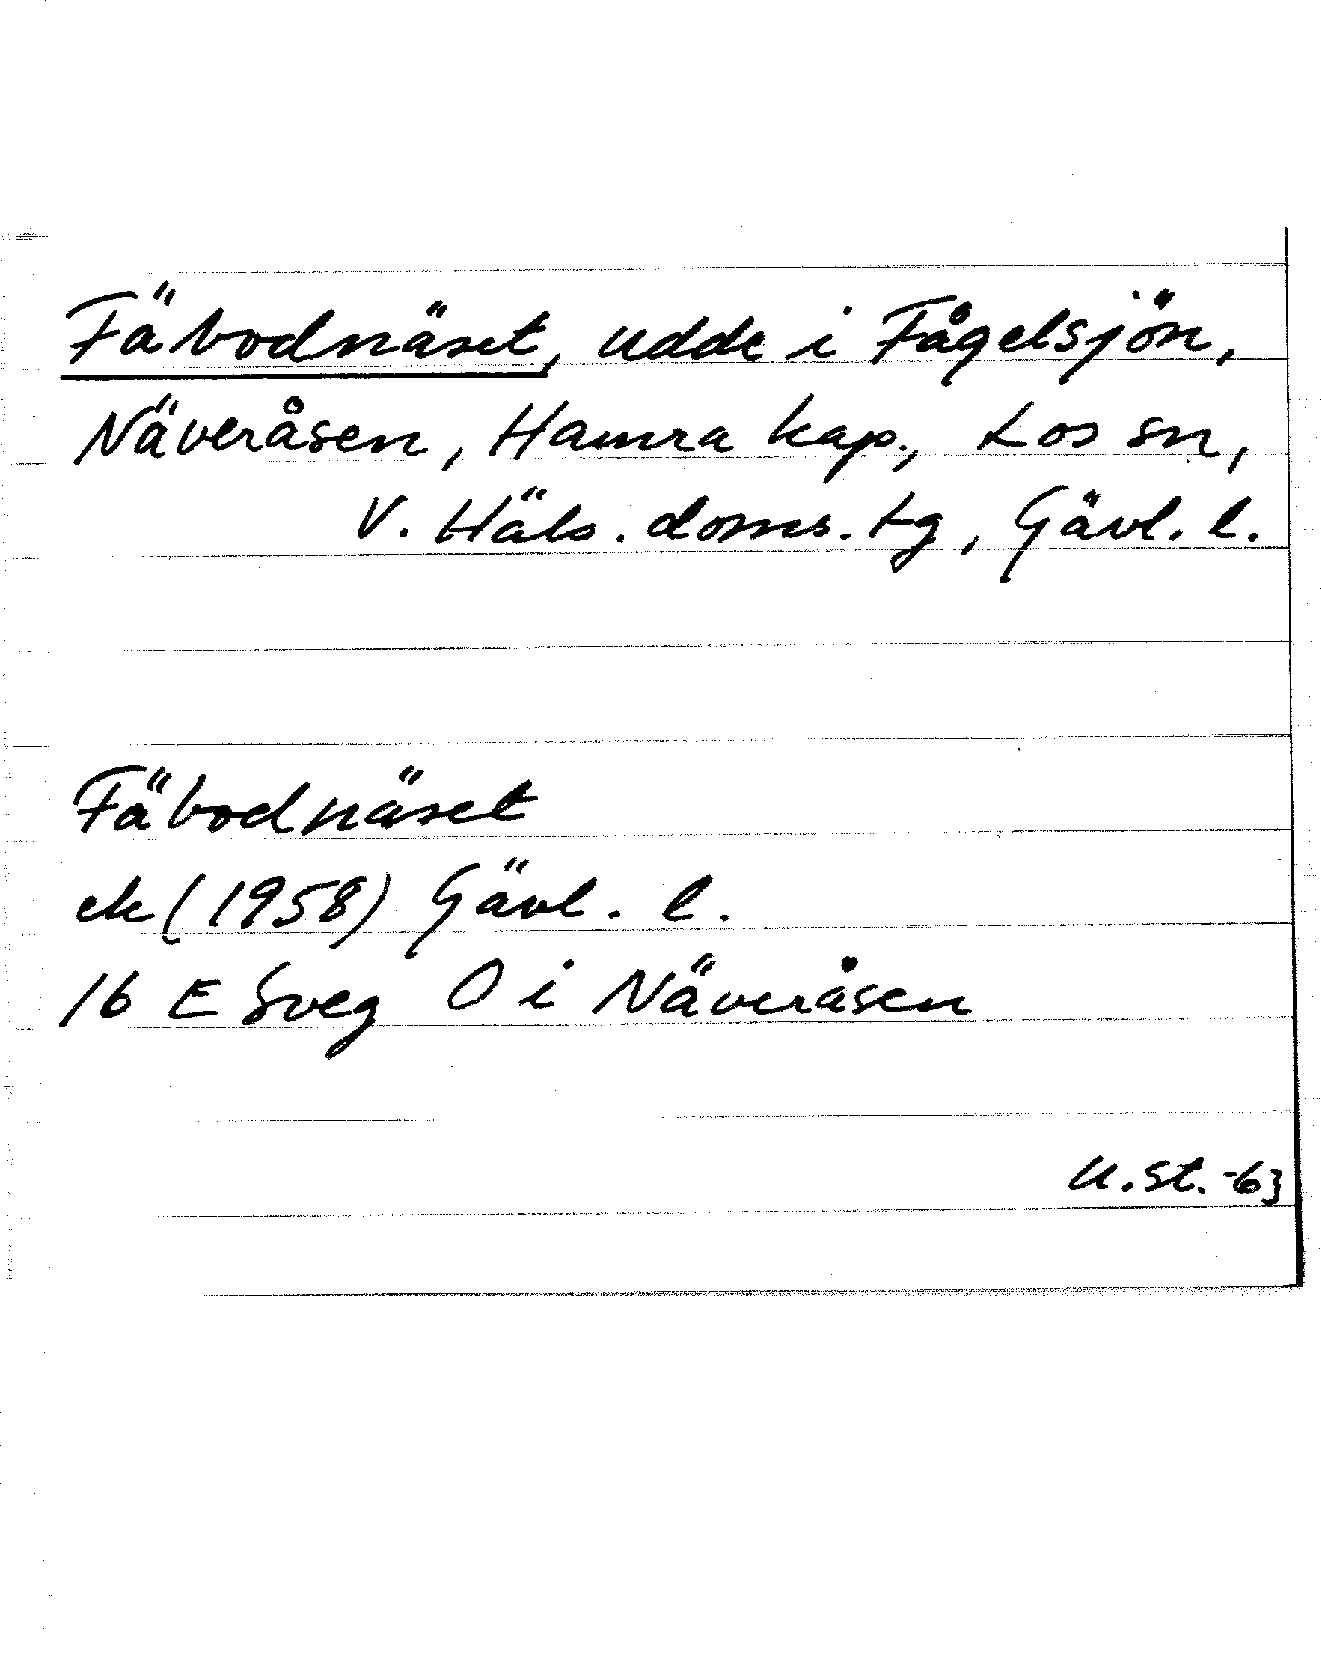 Fäbodnäset, udde i Fågelsjön,
Näveråsen, Hamra kap., Los sn,
V. Häls. doms. tg, Gävl. l.
Fäbodnäset
ek (1958) Gävl. l.
16 E Sveg O i Näveråsen
U.St. -63